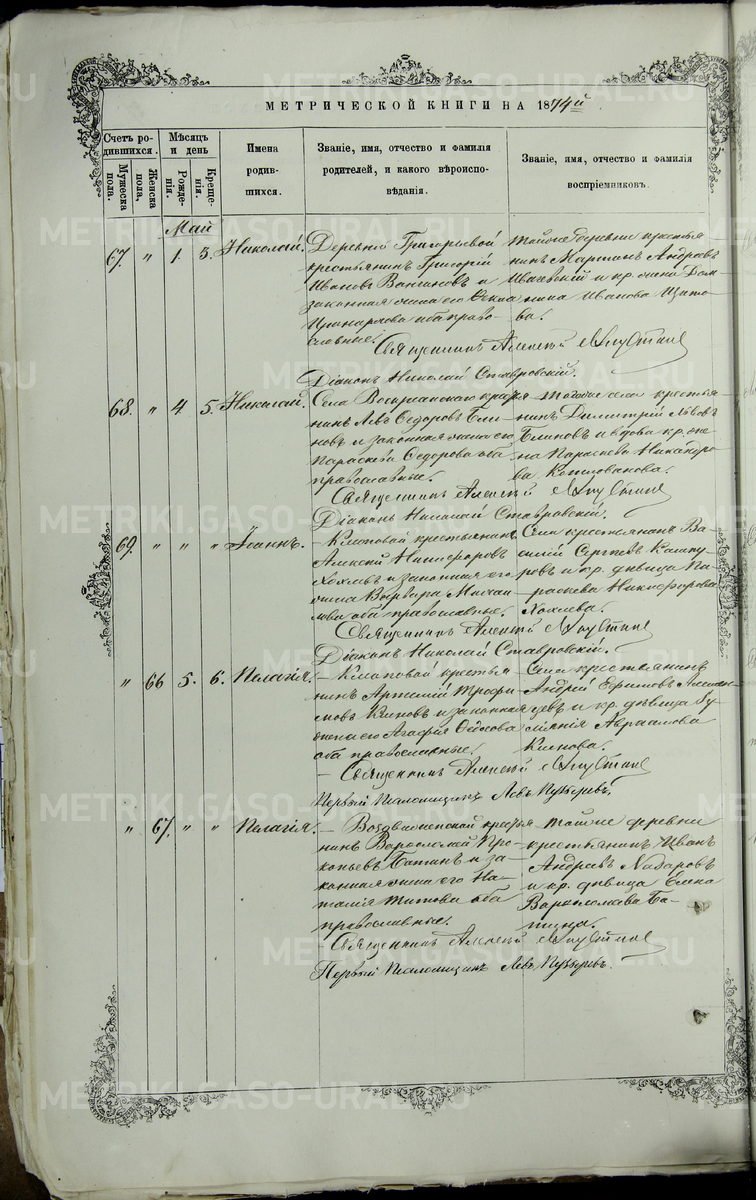 МЕТРИЧЕСКОЙ КНИГИ НА 1874й
Счетъ родившихся.
Мѣсяцъ и день
Имена родившихся.
Званіе, имя, отчество и фамилія родителей, и какого вѣроисповѣданія.
Званіе, имя, отчество и фамилія воспріемниковъ.
Мужеска пола.
Женска пола,
Рожденія.
Крещенія.
Май
67. " 1. 5. Николай.
Деревни Григорьевой
крестьянинъ Григорій
Ивановъ и
законная жена его Ѳекла
оба православные.
такой же деревни крестьянинъ Мартинъ Андреевъ
и кр. жена Домнина Иванова
Священникъ Алексѣй
Діаконъ Николай Ставровскій.
68. " 4. 5. Николай.
Села Воскресенскаго крестьянинъ Левъ Ѳедоровъ Блиновъ и законная жена его
Параскева Ѳедорова оба
православные.
тогоже села крестьянинъ Димитрій Львовъ
Блиновъ и вдова кр. жена Параскева Никандрова
Священникъ Алексѣй
Діаконъ Николай Ставровскій.
69. " " " Іоаннъ.
– Клоповой крестьянинъ
Алексѣй Никифоровъ
Хохлевъ и законная его
жена Варвара Михайлова оба православные.
Села крестьянинъ Василій Сергѣевъ
и кр. дѣвица Параскева Никифорова
Хохлева.
Священникъ Алексѣй
Діаконъ Николай Ставровскій.
" 66 5. 6. Пелагія.
– Клоповой крестьянинъ Артемій Трофимовъ Клюковъ и законная
жена его Агафія
оба православные.
Села крестьянинъ
Андрей Ефимовъ
и кр. дѣвица
Авраамова
Клюкова.
– Священникъ Алексѣй
Первый Псаломщикъ Левъ Пузыревъ.
" 67. " " Пелагія.
– Воздвиженской крестьянинъ Варѳоломей Прокопьевъ Батинъ и законная жена его Наталія Титова оба
православные.
такой же деревни
крестьянинъ Иванъ
Андреевъ
и кр. дѣвица Елена
Варѳоломеева Батина.
– Священникъ Алексѣй
Первый Псаломщикъ Левъ Пузыревъ.
METRIKI.GASO-URAL.RU